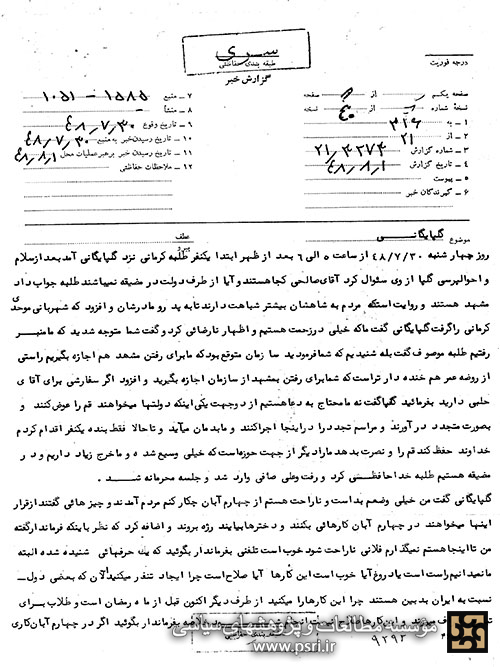 سری
طبقه بندی حفاظتی
گزارش خبر
درجه فوریت
صفحه یکم از صفحه
نسخه شماره از نسخه
۱ ـ به ۳۱۶
۲ ـ از ۲۱
۳ ـ شماره گزارش ۲۱/۴۲۷۴
۴ ـ تاریخ گزارش ۴۸/۸/۱
۵ ـ پیوست
۶ ـ گیرندگان خبر
۷ ـ منبع ۱۵۸۵ ـ ۱۰۵۱
۸ ـ منشأ
۹ ـ تاریخ وقوع ۴۸/۷/۳۰
۱۰ ـ تاریخ رسیدن خبر به منبع ۴۸/۷/۳۰
۱۱ ـ تاریخ رسیدن خبر برهبر عملیات محل ۴۸/۸/۱
۱۲ ـ ملاحظات حفاظتی
موضوع گلپایگانی
عطف
پیرو
روز چهار شنبه ۴۸/۷/۳۰ از ساعت ۵ الی ۶ بعد از ظهر ابتدا یکنفر طلبه کرمانی نزد گلپایگانی آمد بعد از سلام
و احوالپرسی گلپا از وی سئوال کرد آقای صالحی کجا هستند و آیا از طرف دولت در مضیقه نمیباشند طلبه جواب داد
مشهد هستند و روایت استکه مردم به شاهشان بیشتر شباهت دارند تا به پدر و مادرشان و افزود که شهربانی موحدی
کرمانی را گرفت گلپایگانی گفت ما که خیلی در زحمت هستیم و اظهار نارضائی کرد و گفت شما متوجه شدید که ما منبر
رفتیم طلبه موصوف گفت بله شنیدیم که شما فرمودید سازمان متوقع بود که ما برای رفتن مشهد هم اجازه بگیریم راستی
از روضه عمر هم خنده دار تر است که شما برای رفتن بمشهد از سازمان اجازه بگیرید و افزود اگر سفارشی برای آقای
حلبی دارید بفرمائید گلپا گفت نه ما محتاج به دعا هستیم از دو جهت یکی اینکه دولتها میخواهند قم را عوض کنند و
بصورت متجدد در آورند و مراسم تجدد را در اینجا اجرا کنند و ما بدمان میآید و تا حالا فقط بنده یکنفر اقدام کردم
خداوند حفظ کند قم را و نصرت بدهد ما را دیگر از جهت حوزه است که خیلی وسیع شده و مخارج زیاد داریم و در
مضیقه هستیم طلبه خدا حافظی کرد و رفت و علی صافی وارد شد و جلسه محرمانه شد.
گلپایگانی گفت من خیلی وضعم بد است و ناراحت هستم از چهارم آبان چکار کنم مردم آمدند و چیزهائی گفتند از قرار
اینها میخواهند در چهارم آبان کارهائی بکنند و دخترها بیایند رژه بروند و اضافه کرد که نظر باینکه فرماندار گفته
من تا اینجا هستم نمیگذارم فلانی ناراحت شود خوب است تلفنی بفرماندار بگوئید که یک حرفهائی شنیده شده البته
ما نمیدانیم راست است یا دروغ آیا خوب است این کارها آیا صلاح است چرا ایجاد تنفر میکنید الان که بعضی دول ـ
نسبت به ایران بدبین هستند چرا این کارها را میکنید از طرف دیگر اکنون قبل از ماه رمضان است و طلاب برای
بفرماندار بگوئید اگر در چهارم آبان کاری
موسسه مطالعات و پژوهشهای سیاسی
www.psri.ir
۹۲۹۲